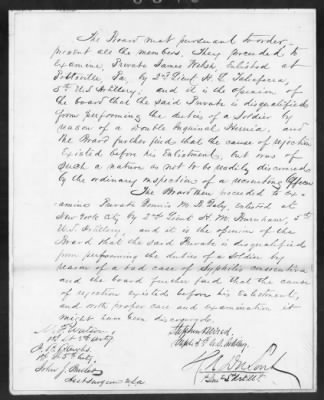 The Board met pursuant to order,
present all the members. They proceeded to
examine Private James Welsh, enlisted at
Pottsville, Pa, by 2d Lieut H. L.
5th U.S Artillery; and it is the opinion of
the board that the said Private is disqualified
from performing the duties of a Soldier by
reason of a Double Inguinal Hernia, and
the Board further find that the cause of rejection
existed before his Enlistment, but was of
such a nature as not to be readily discovered
by the ordinary inspection of a recruiting Officer
The Board then proceeded to ex-
amine Private Dennis M. Daly, enlisted at
New York City by 2nd Lieut H. M. Burnham, 5th
U.S. Artillery, and it is the opinion of the
Board that the said Private is disqualified
from performing the duties of a Soldier by
reason of a bad case of Syphilis consecutiva
and the board further find that the cause
of rejection existed before his Enlistment,
and with proper care and examination it
might have been discovered.
M. F. Watson
1st Lt 5th Arty
Stephen H Weed
Capt. 5th U.S. Artillery
1st Lt 5 Arty
John J.
Asst Surgeon USA